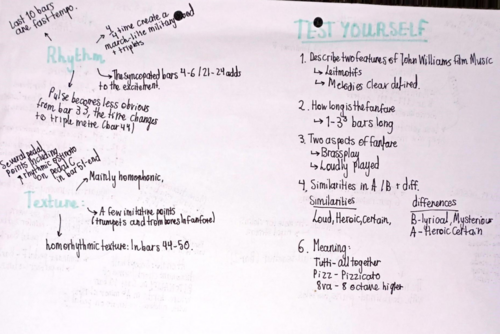 Last 10 bars
are fast tempo.
4
4 time create a
march-like military
+ triplets
Rhythm
The syncopated bars 4-6/21-24 adds
to the excitement.
Pulse becomes less obvious
from bar 33, the time changes
to triple metre (bar 44)
Several pedal
points including
rhythmic ostinato
on pedal C
in bar 51-end
Mainly homophonic,
Texture:
A few imitative points
(trumpets and trombones in fanfare)
homorhythmic texture: In bars 44-50.
TEST YOURSELF
1. Describe two features of John Williams film Music
Leitmotifs
Melodies clear defined.
2. How long is the fanfare
1-3³ bars long
3. Two aspects of fanfare
Brass play
Loudly played
4. Similarities in A / B + diff.
Similarities differences
Loud, Heroic, Certain, B-lyrical, Mysterious
A-Heroic Certain
6. Meaning:
Tutti-all together
Pizz-Pizzicato
8va-8 octave higher